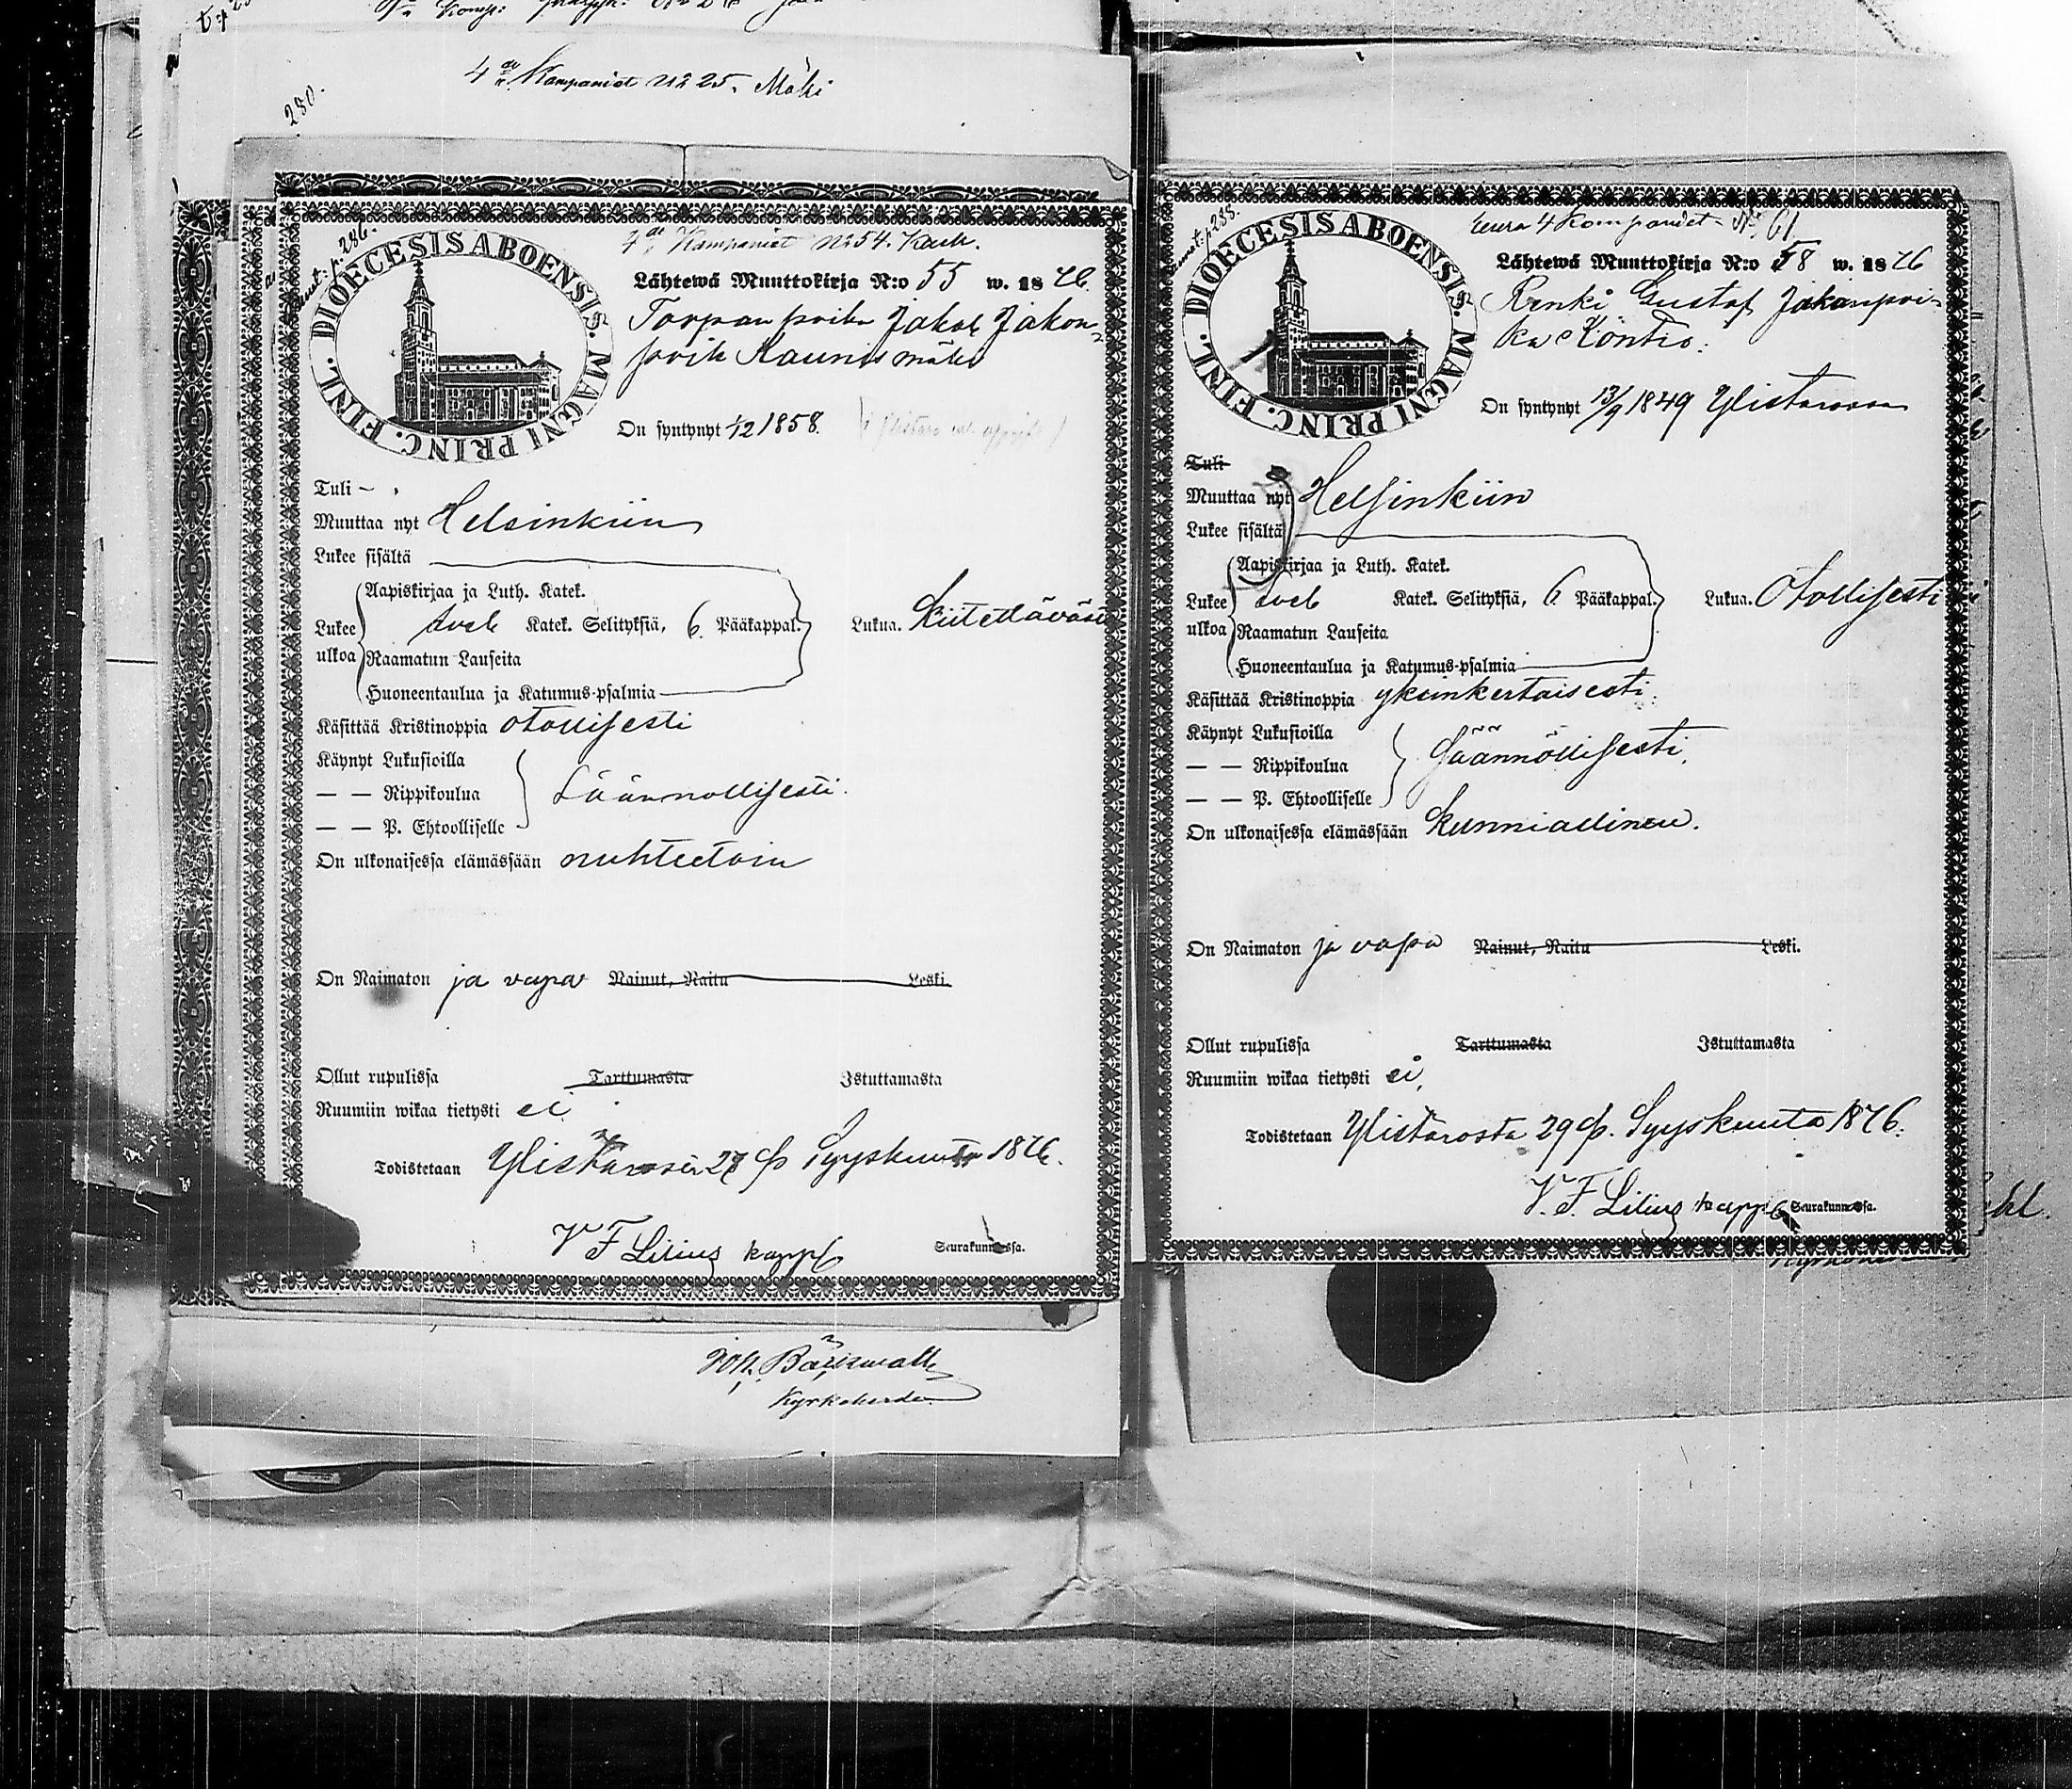 4de Kompaniet No 25. Mäki
280.
4de Kompaniet No 54. Karh.
DIOECESIS ABOENSIS. MAGNI PRINC. FINL.
Lähtewä Muuttokirja N:o 55 w. 1876.
Torpan poika Jakob Jakon-
poik Kaunismäki
On syntynyt 1/12 1858.
Tuli –
Muuttaa nyt Helsinkiin
Lukee sisältä
Aapiskirjaa ja Luth. Katek.
Lukee ulkoa
Sveb Katek. Selityksiä, 6. Pääkappal. Lukua. Kiitettäväst
Raamatun Lauseita
Huoneentaulua ja Katumus-psalmia
Käsittää Kristinoppia otollisesti
Käynyt Lukusioilla
— — Rippikoulua Säännollisesti.
— — P. Ehtoolliselle
On ulkonaisessa elämässään nuhteetoin
On Naimaton ja vapa Nainut, Naitu Leski.
Ollut rupulissa Tarttumasta Istuttamasta
Ruumiin wikaa tietysti ei
Todistetaan 27 p Syyskuuta 1876.
V F Lilius kappl Seurakunnassa.
Kyrkoherde
4 Kompaniet No 61
DIOECESIS ABOENSIS. MAGNI PRINC. FINL.
Lähtewä Muuttokirja N:o 58 w. 1876
Renki Gustaf Jakanpoi-
ka Kontio.
On syntynyt 13/9 1849 Ylistarossa
Tuli
Muuttaa nyt Helsinkiin
Lukee sisältä
Aapiskirjaa ja Luth. Katek.
Lukee ulkoa
Sveb Katek. Selityksiä, 6 Pääkappal. Lukua. Otollisesti
Raamatun Lauseita
Huoneentaulua ja Katumus-psalmia
Käsittää Kristinoppia yksinkertaisesti.
Käynyt Lukusioilla
— — Rippikoulua Säännöllisesti.
— — P. Ehtoolliselle
On ulkonaisessa elämässään kunniallinen.
On Naimaton ja vapa Nainut, Naitu Leski.
Ollut rupulissa Tarttumasta Istuttamasta
Ruumiin wikaa tietysti ei,
Todistetaan Ylistarosta 29 p. Syyskuuta 1876.
V. F. Lilius kappl Seurakunnassa.